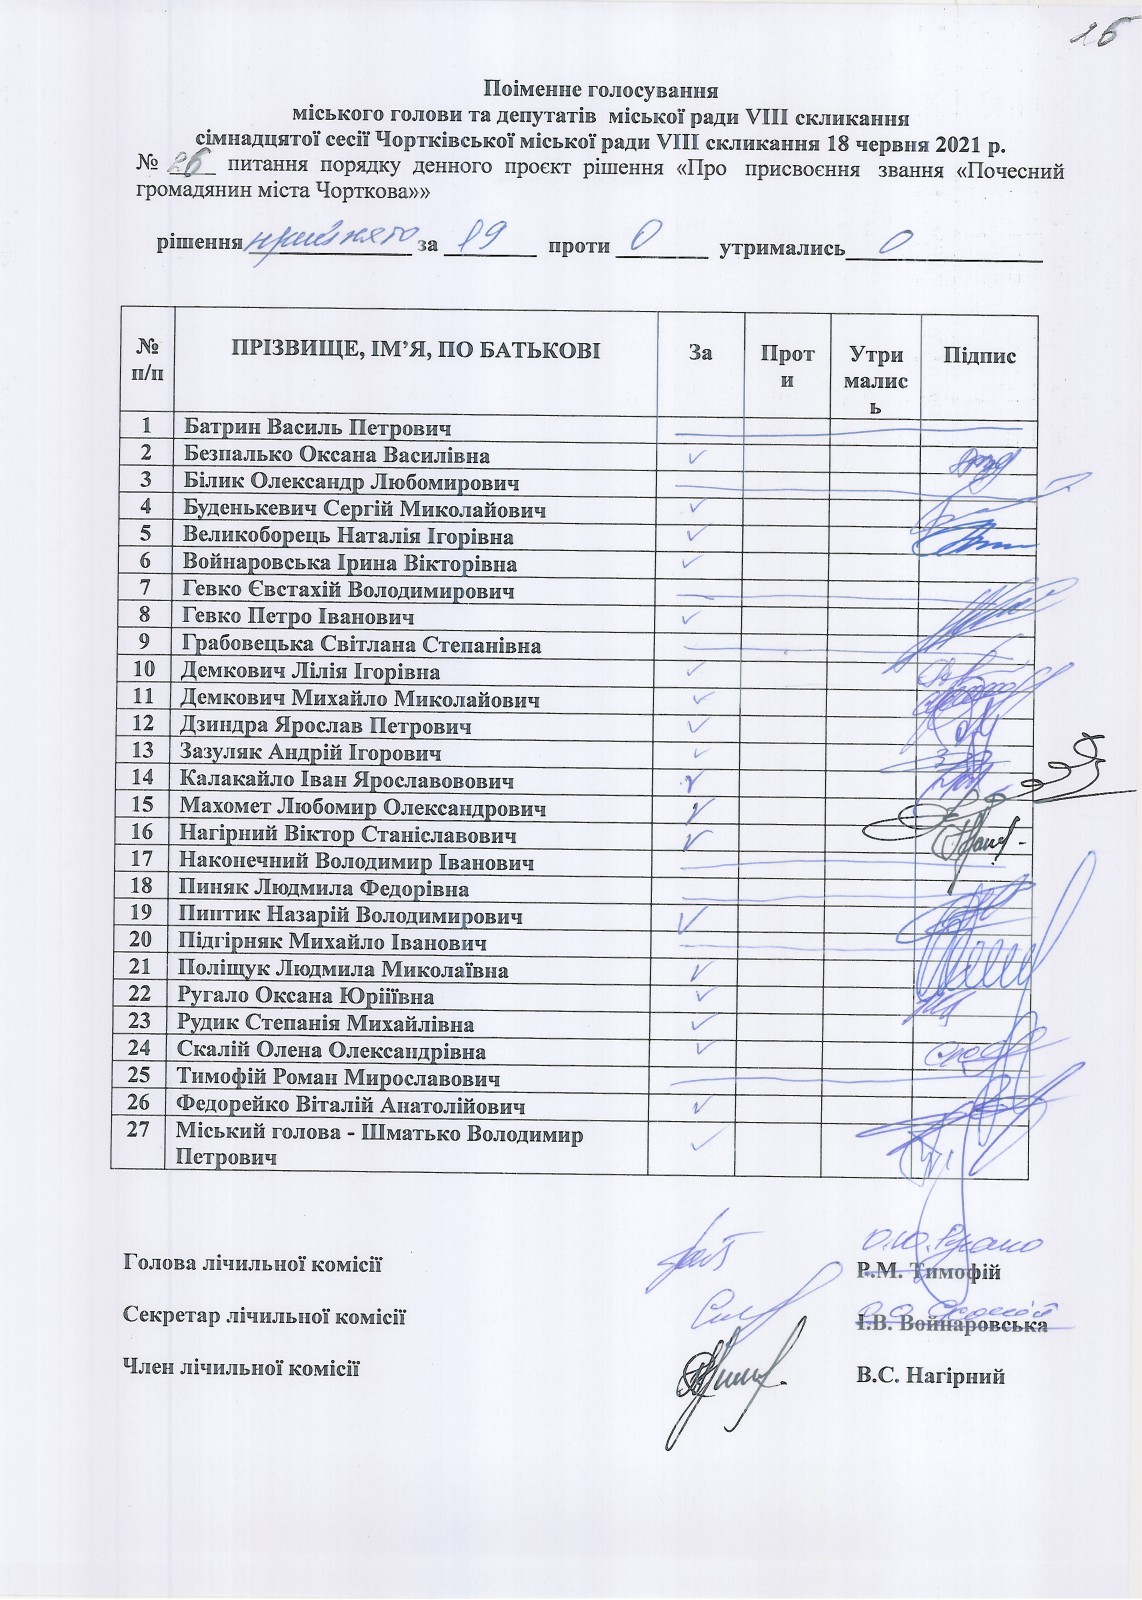 26
Поіменне голосування
міського голови та депутатів міської ради VIII скликання
сімнадцятої сесії Чортківської міської ради VIII скликання 18 червня 2021 р.
№ 26 питання порядку денного проєкт рішення «Про присвоєння звання «Почесний
громадянин міста Чорткова»»
рішення прийнято за 19 проти 0 утримались 0
№ п/п ПРІЗВИЩЕ, ІМ’Я, ПО БАТЬКОВІ За Проти Утримались Підпис
1 Батрин Василь Петрович
2 Безпалько Оксана Василівна ✓
3 Білик Олександр Любомирович
4 Буденькевич Сергій Миколайович ✓
5 Великоборець Наталія Ігорівна ✓
6 Войнаровська Ірина Вікторівна ✓
7 Гевко Євстахій Володимирович
8 Гевко Петро Іванович ✓
9 Грабовецька Світлана Степанівна
10 Демкович Лілія Ігорівна ✓
11 Демкович Михайло Миколайович ✓
12 Дзиндра Ярослав Петрович ✓
13 Зазуляк Андрій Ігорович ✓
14 Калакайло Іван Ярославовович ✓
15 Махомет Любомир Олександрович ✓
16 Нагірний Віктор Станіславович ✓
17 Наконечний Володимир Іванович
18 Пиняк Людмила Федорівна
19 Пиптик Назарій Володимирович ✓
20 Підгірняк Михайло Іванович
21 Поліщук Людмила Миколаївна ✓
22 Ругало Оксана Юріїївна ✓
23 Рудик Степанія Михайлівна ✓
24 Скалій Олена Олександрівна ✓
25 Тимофій Роман Мирославович
26 Федорейко Віталій Анатолійович ✓
27 Міський голова - Шматько Володимир
Петрович ✓
О.Ю. Ругало
Голова лічильної комісії Р.М. Тимофій
О.О. Скалій
Секретар лічильної комісії І.В. Войнаровська
Член лічильної комісії В.С. Нагірний